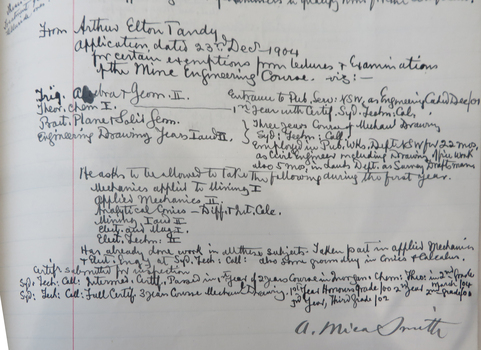 From Arthur Elton Tandy
Application, dated 23rd Decr 1904
for certain exemptions from lectures & Examinations
of the Mine Engineering Course. viz:—
Trig. Algebra & Geom. II. Entrance to Pub. Serv. NSW, as Engineering Cadet Dec/01
Theor. Chem I. 1st year with Certif. Syd. Techn. Col.
Pract. Plane & Solid Geom. Three Years Course of Mechanl Drawing
Engineering Drawing Years I and II. Syd. Techn. Coll.
Employed in Pub. Wks. Deptt NSW for 22 mos.
as Civil Engineer including Drawing, Office work
also 5 mos. in Lands Deptt. as Survey Draftsman
He asks to be allowed to take the following during the first year.
Mechanics applied to Mining I
Applied Mechanics II
Analytical Conics — Diff. & Int. Calc.
Mining I and II
Elect. and Mag. I
Elect. Techn. II
Has already done work in all these subjects. Taken part in applied Mechanics
& Elect. Eng. at Syd. Tech: Coll: also some grounding in Conics & Calculus.
Certifs submitted for inspection
Syd. Tech: Coll: Intermed. Certif. Passed in 1st Year of 2 years Course in Inorgan. Chem: Theo: in 2nd Grade
Syd: Tech: Coll: Full Certif. 3 year Course Mechanl Drawing. 1st Year Honours Grade/00 2nd Year 2nd Grade/00
March /04
3rd Year, Third Grade /02
A. Mica Smith